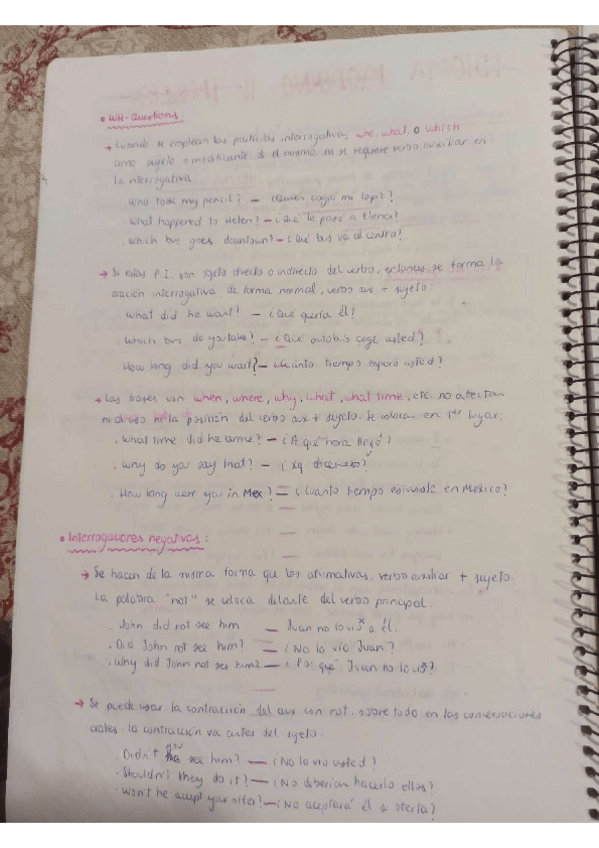 • WH-Questions:
→ Cuando se emplean las partículas interrogativas who, what, o which
como sujeto o modificante del mismo, no se requiere verbo auxiliar en
la interrogativa
· Who took my pencil? — ¿Quién cogió mi lapiz?
· What happened to Helen? — ¿Qué le pasó a Elena?
· Which bus goes downtown? — ¿Qué bus va al centro?
→ Si estas P.I. son sujeto directo o indirecto del verbo, entonces se forma la
oración interrogativa de forma normal, verbo aux + sujeto:
· What did he want? — ¿Qué quería él?
· Which bus do you take? — ¿Qué autobús coge usted?
· How long did you wait? — ¿Cuánto tiempo esperó usted?
→ Las frases con when, where, why, what, what time, etc. no afectan
ni al uso ni la posición del verbo aux + sujeto. Se colocan en 1er lugar.
· What time did he arrive? — ¿A qué hora llegó?
· Why do you say that? — ¿xq dice eso?
· How long were you in Mex? — ¿Cuánto tiempo estuviste en México?
• Interrogaciones negativas:
→ Se hacen de la misma forma que las afirmativas, verbo auxiliar + sujeto.
La palabra "not" se coloca delante del verbo principal.
· John did not see him. — Juan no lo vio a él.
· Did John not see him? — ¿No lo vio Juan?
· Why did John not see him? — ¿Por qué Juan no lo vio?
→ Se puede usar la contracción del aux con not, sobre todo en las conversaciones
orales. la contracción va antes del sujeto.
· Didn't you see him? — ¿No lo vio usted?
· Shouldn't they do it? — ¿No deberían hacerlo ellos?
· Won't he accept your offer? — ¿No aceptará él oferta?